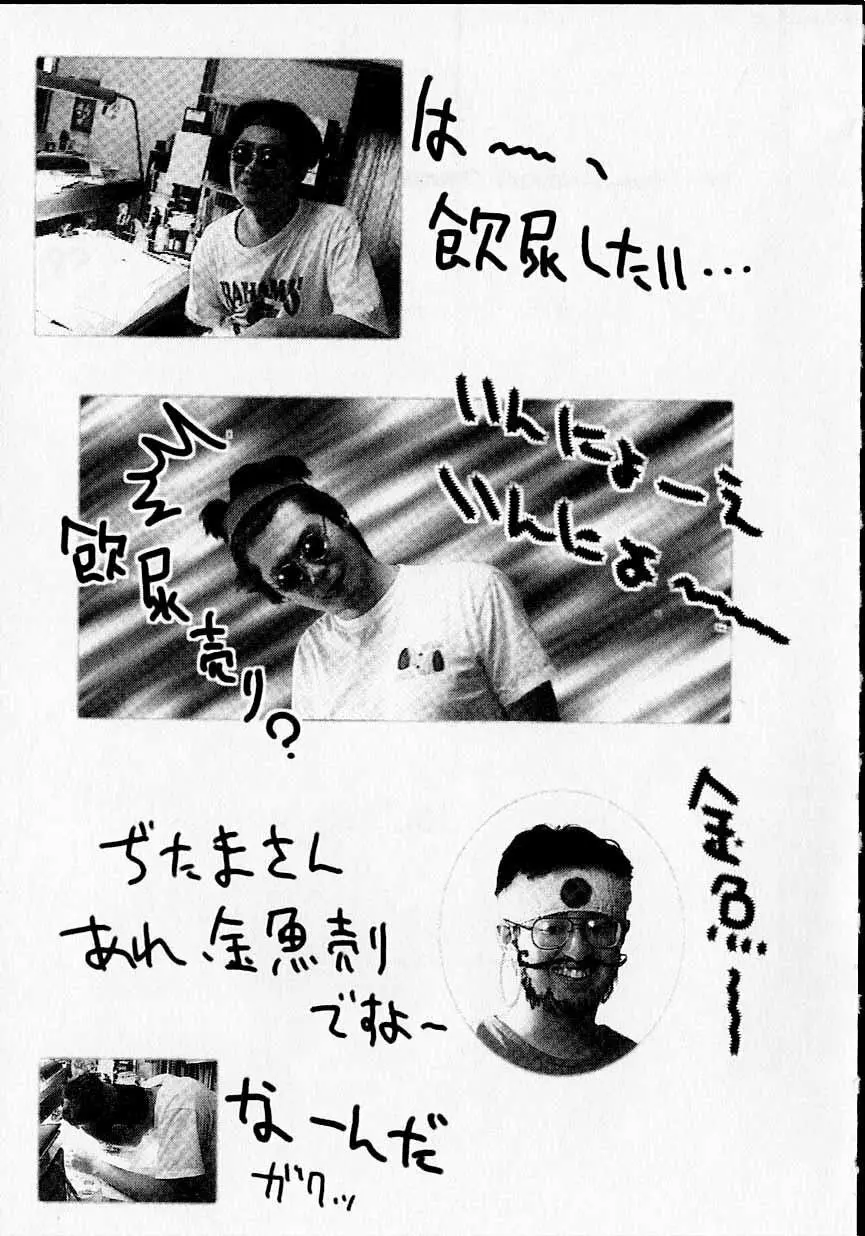 はー、
飲尿したい…
RAHAMS'
いんにょーえ
いんにょ〜
飲尿売り？
金魚〜
ぢたまさん
あれ、金魚売り
ですよ〜
なーんだ
ガクッ